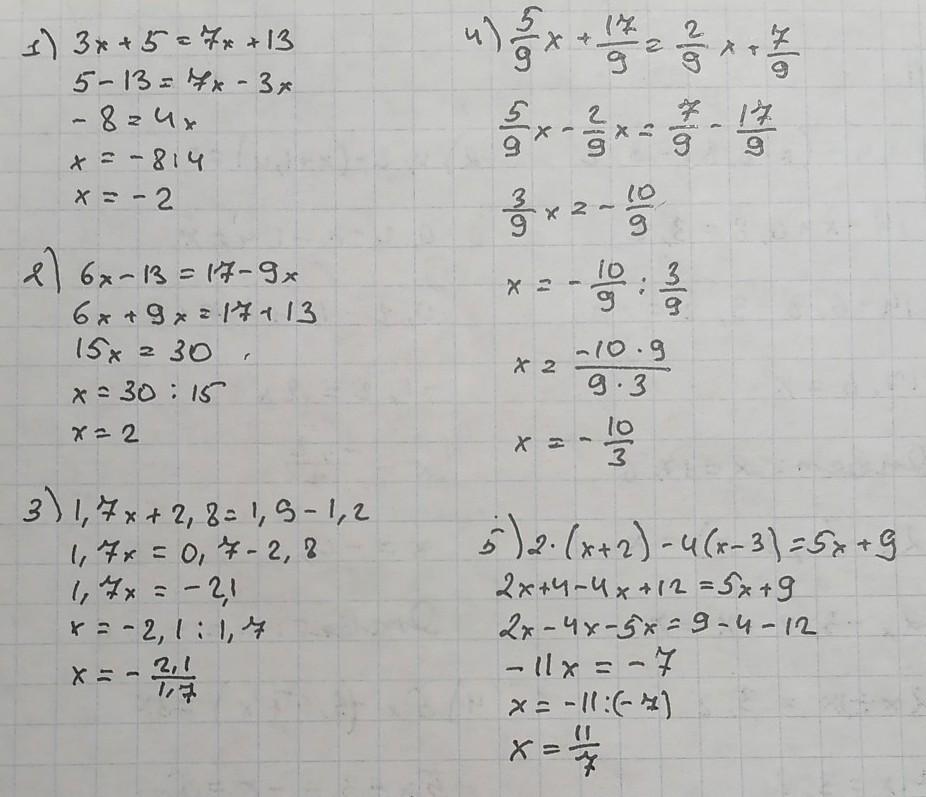 1) 3x + 5 = 7x + 13
5 - 13 = 7x - 3x
- 8 = 4x
x = - 8 : 4
x = - 2
2) 6x - 13 = 17 - 9x
6x + 9x = 17 + 13
15x = 30
x = 30 : 15
x = 2
3) 1,7x + 2,8 = 1,9 - 1,2
1,7x = 0,7 - 2,8
1,7x = - 2,1
x = - 2,1 : 1,7
x = - 2,1/1,7
4) 5/9 x + 17/9 = 2/9 x + 7/9
5/9 x - 2/9 x = 7/9 - 17/9
3/9 x = - 10/9
x = - 10/9 : 3/9
x = -10 · 9 / 9 · 3
x = - 10/3
5) 2 · (x + 2) - 4(x - 3) = 5x + 9
2x + 4 - 4x + 12 = 5x + 9
2x - 4x - 5x = 9 - 4 - 12
- 11x = - 7
x = - 11 : (- 7)
x = 11/7